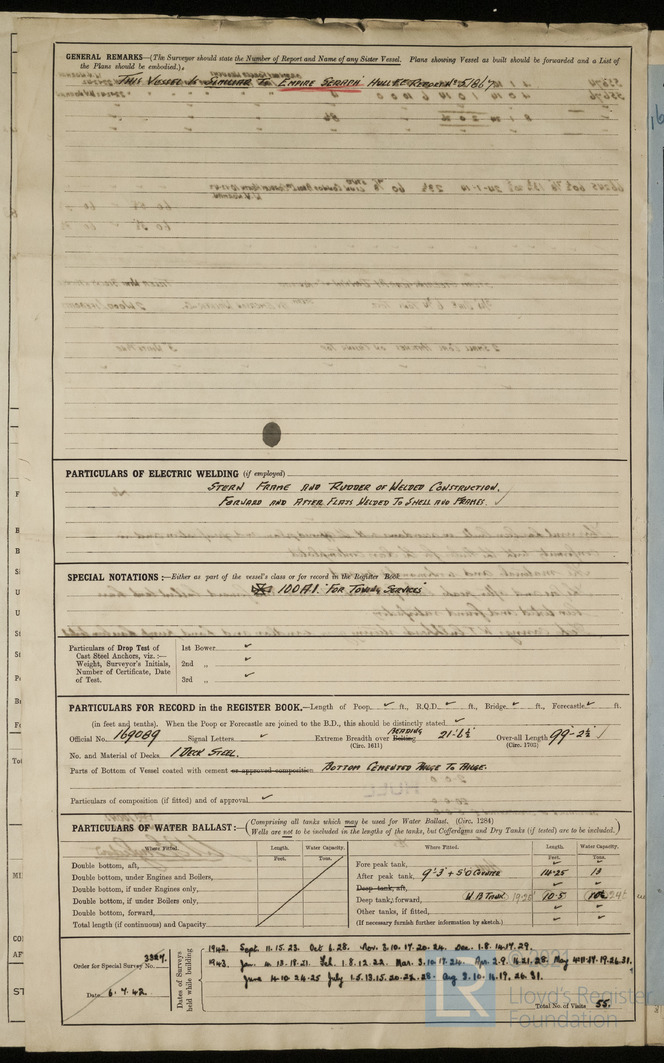 GENERAL REMARKS—(The Surveyor should state the Number of Report and Name of any Sister Vessel. Plans showing Vessel as built should be forwarded and a List of
the Plans should be embodied.)
THIS VESSEL IS SIMILAR TO "EMPIRE SERAPH" HULL REPORT No 51867
PARTICULARS OF ELECTRIC WELDING (if employed)
STERN FRAME AND RUDDER OF WELDED CONSTRUCTION.
FORWARD AND AFTER FLATS WELDED TO SHELL AND FRAMES.
SPECIAL NOTATIONS:—Either as part of the vessel's class or for record in the Register Book
100A1. "FOR TOWING SERVICES"
Particulars of Drop Test of
Cast Steel Anchors, viz.:—
Weight, Surveyor's Initials,
Number of Certificate, Date
of Test.
1st Bower
2nd „
3rd „
PARTICULARS FOR RECORD in the REGISTER BOOK.—Length of Poop ft., R.Q.D. ft., Bridge ft., Forecastle ft.
(in feet and tenths). When the Poop or Forecastle are joined to the B.D., this should be distinctly stated.
Official No. 169089 Signal Letters Extreme Breadth over Belting BEADING 21'-6½" Over-all Length 99'-2½"
(Circ. 1611) (Circ. 1703)
No. and Material of Decks 1 DECK STEEL.
Parts of Bottom of Vessel coated with cement or approved composition BOTTOM CEMENTED BILGE TO BILGE.
Particulars of composition (if fitted) and of approval
PARTICULARS OF WATER BALLAST:—(Comprising all tanks which may be used for Water Ballast. (Circ. 1284)
Wells are not to be included in the lengths of the tanks, but Cofferdams and Dry Tanks (if tested) are to be included.)
Where Fitted. Length. Water Capacity. Where Fitted. Length. Water Capacity.
Feet. Tons. Feet. Tons.
Double bottom, aft,
Double bottom, under Engines and Boilers,
Double bottom, if under Engines only,
Double bottom, if under Boilers only,
Double bottom, forward,
Total length (if continuous) and Capacity
Fore peak tank,
After peak tank, 9'-3" + 5'0 COUNTER 14·25 13
Deep tank, aft,
Deep tank, forward, W B TANK 10·5
Other tanks, if fitted,
(If necessary furnish further information by sketch.)
Order for Special Survey No. 3327.
Date 6.7.42.
Dates of Surveys
held while building
1942. Sept. 11.15.23. Oct 6.28. Nov. 3.10.17.20.24. Dec. 1.8.14.17.29.
1943. Jan. 4.13.18.21. Feb. 1.8.12.22. Mar. 3.10.17.24. Apr. 2.9.14.21.28. May 4.11.17.19.26.31.
June 4.10.24.25 July 1.5.13.15.20.22.28. Aug 3.10.14.19.26.31.
Total No. of Visits 55.
Lloyd's Register
Foundation